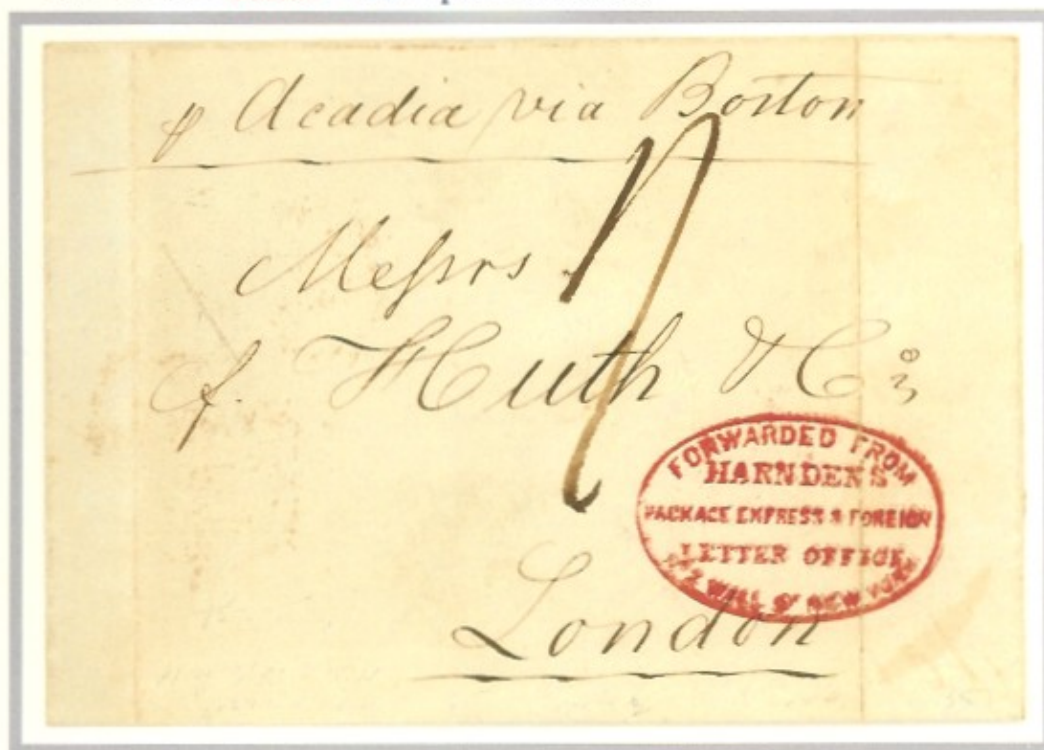 p Acadia via Boston
Messrs
f. Huth & Co
FORWARDED FROM
HARNDEN'S
PACKAGE EXPRESS & FOREIGN
LETTER OFFICE
WALL ST NEW YORK
London